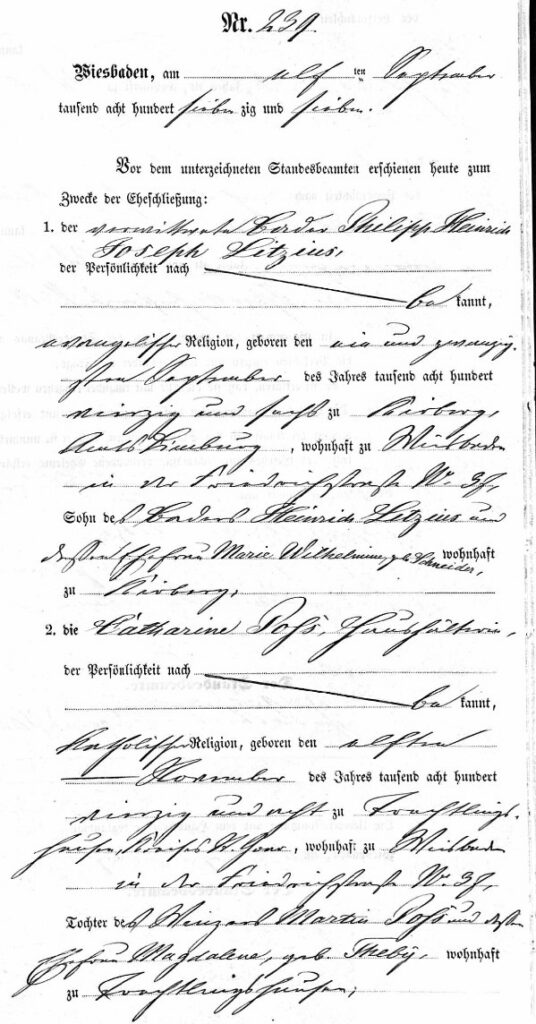 Nr. 239.
Wiesbaden, am elf ten September
tausend acht hundert sieben zig und sieben.
Vor dem unterzeichneten Standesbeamten erschienen heute zum
Zwecke der Eheschließung:
1. der verwittwete Bader Philipp Heinrich
Joseph Litzius,
der Persönlichkeit nach
be kannt,
evangelischer Religion, geboren den ein und zwanzig-
sten September des Jahres tausend acht hundert
vierzig und sechs zu Kirberg,
Amts Limburg, wohnhaft zu Wiesbaden
in der Friedrichstraße No. 37,
Sohn des Baders Heinrich Litzius und
dessen Ehefrau Marie Wilhelmine, geb. Schneider, wohnhaft
zu Kirberg,
2. die Catharine Poß, Haushälterin,
der Persönlichkeit nach
be kannt,
katholischer Religion, geboren den elften
November des Jahres tausend acht hundert
vierzig und acht zu Trechtlings-
hausen, Kreises St. Goar, wohnhaft zu Wiesbaden
in der Friedrichstraße No. 37,
Tochter des Winzers Martin Poß und dessen
Ehefrau Magdalena, geb. wohnhaft
zu Trechtlingshausen;